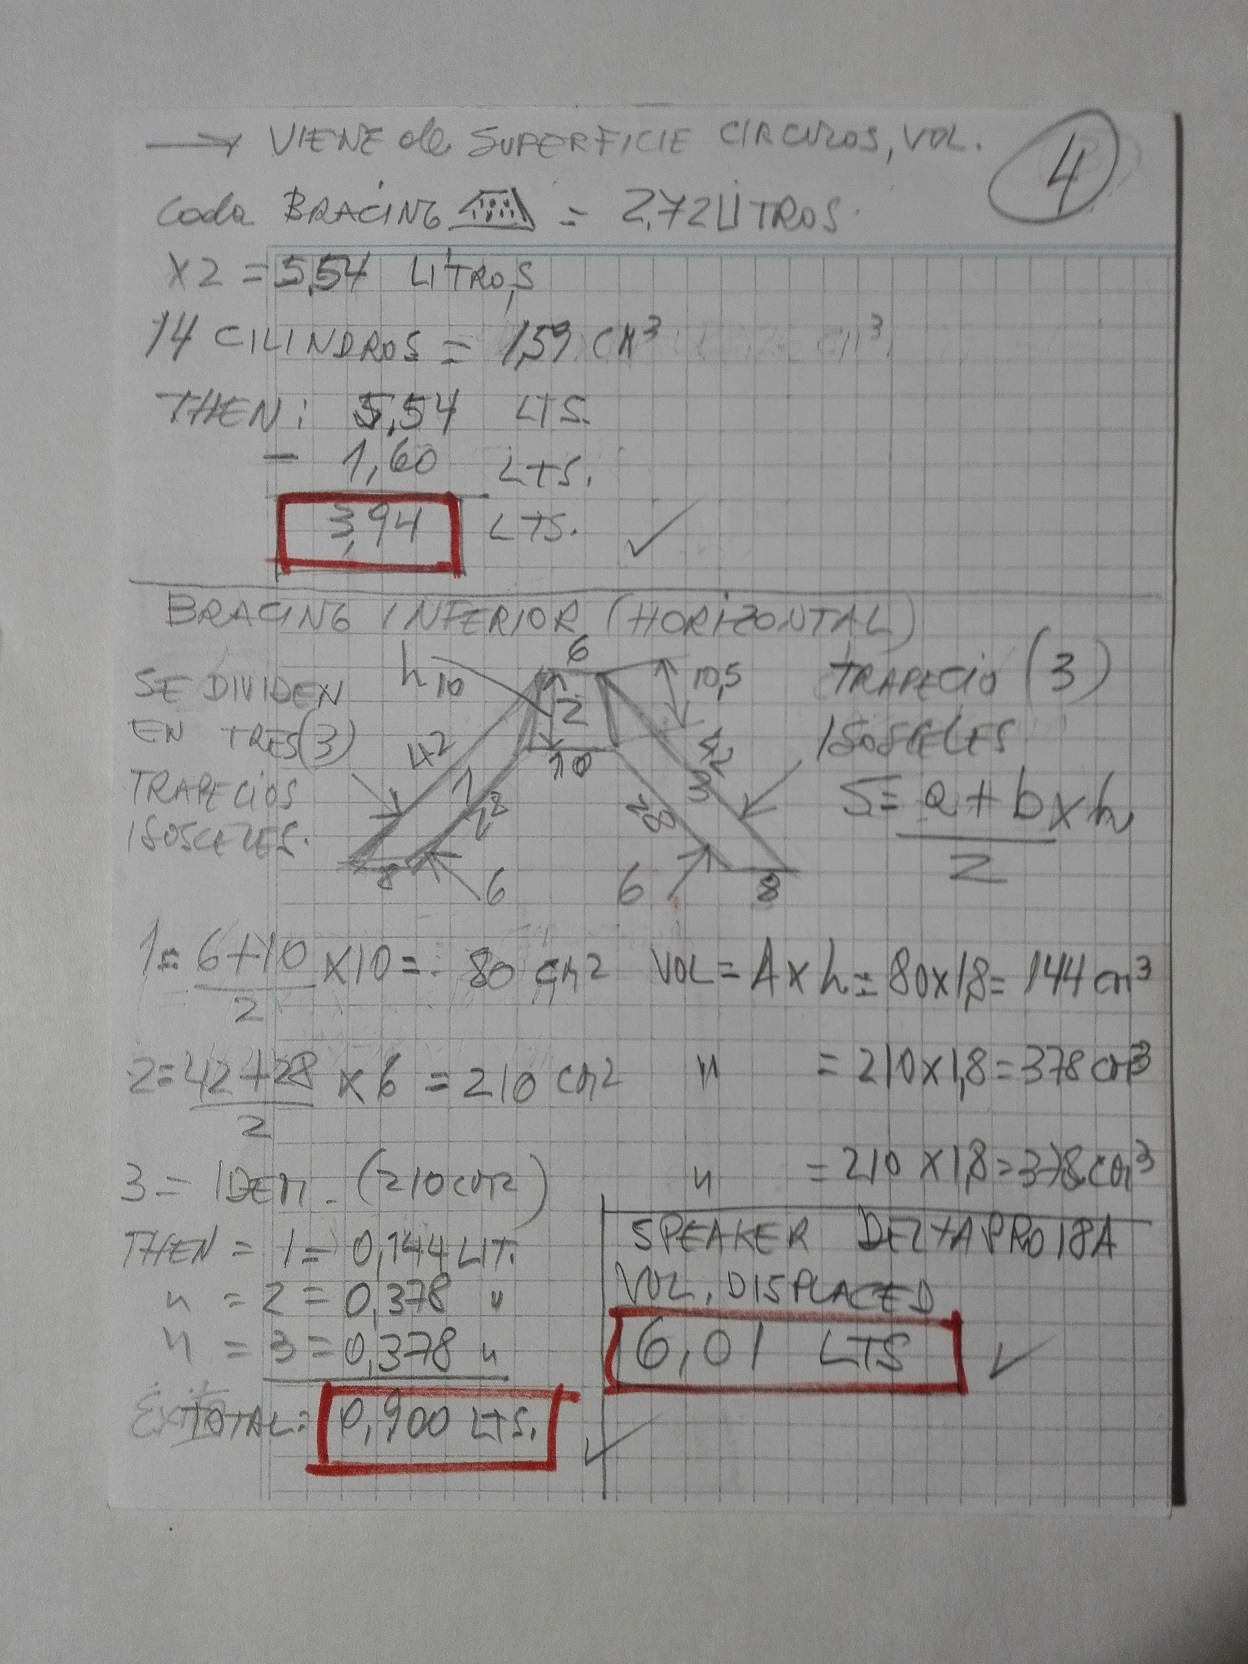 → VIENE de SUPERFICIE CIRCULOS, VOL.
4
Cada BRACING = 2,72 LITROS.
X2 = 5,54 LITROS
14 CILINDROS = 1,59 cm³
THEN: 5,54 LTS.
- 1,60 LTS.
3,94 LTS. ✓
BRACING INFERIOR (HORIZONTAL)
SE DIVIDEN
EN TRES (3)
TRAPECIOS
ISOSCELES.
h10
6
10,5
2
10
42
1
28
8
6
42
3
28
6
8
TRAPECIO (3)
ISOSCELES
S = a + b x h
2
1 = 6+10 x 10 = 80 cm2 VOL = A x h = 80x1,8 = 144 cm³
2
2 = 42+28 x 6 = 210 cm2 " = 210 x 1,8 = 378 cm³
2
3 = IDEM. (210 cm2) " = 210 x 1,8 = 378 cm³
THEN = 1 = 0,144 LIT.
" = 2 = 0,378 "
" = 3 = 0,378 "
TOTAL: 0,900 LTS. ✓
SPEAKER DELTAPRO 18A
VOL. DISPLACED
6,01 LTS ✓